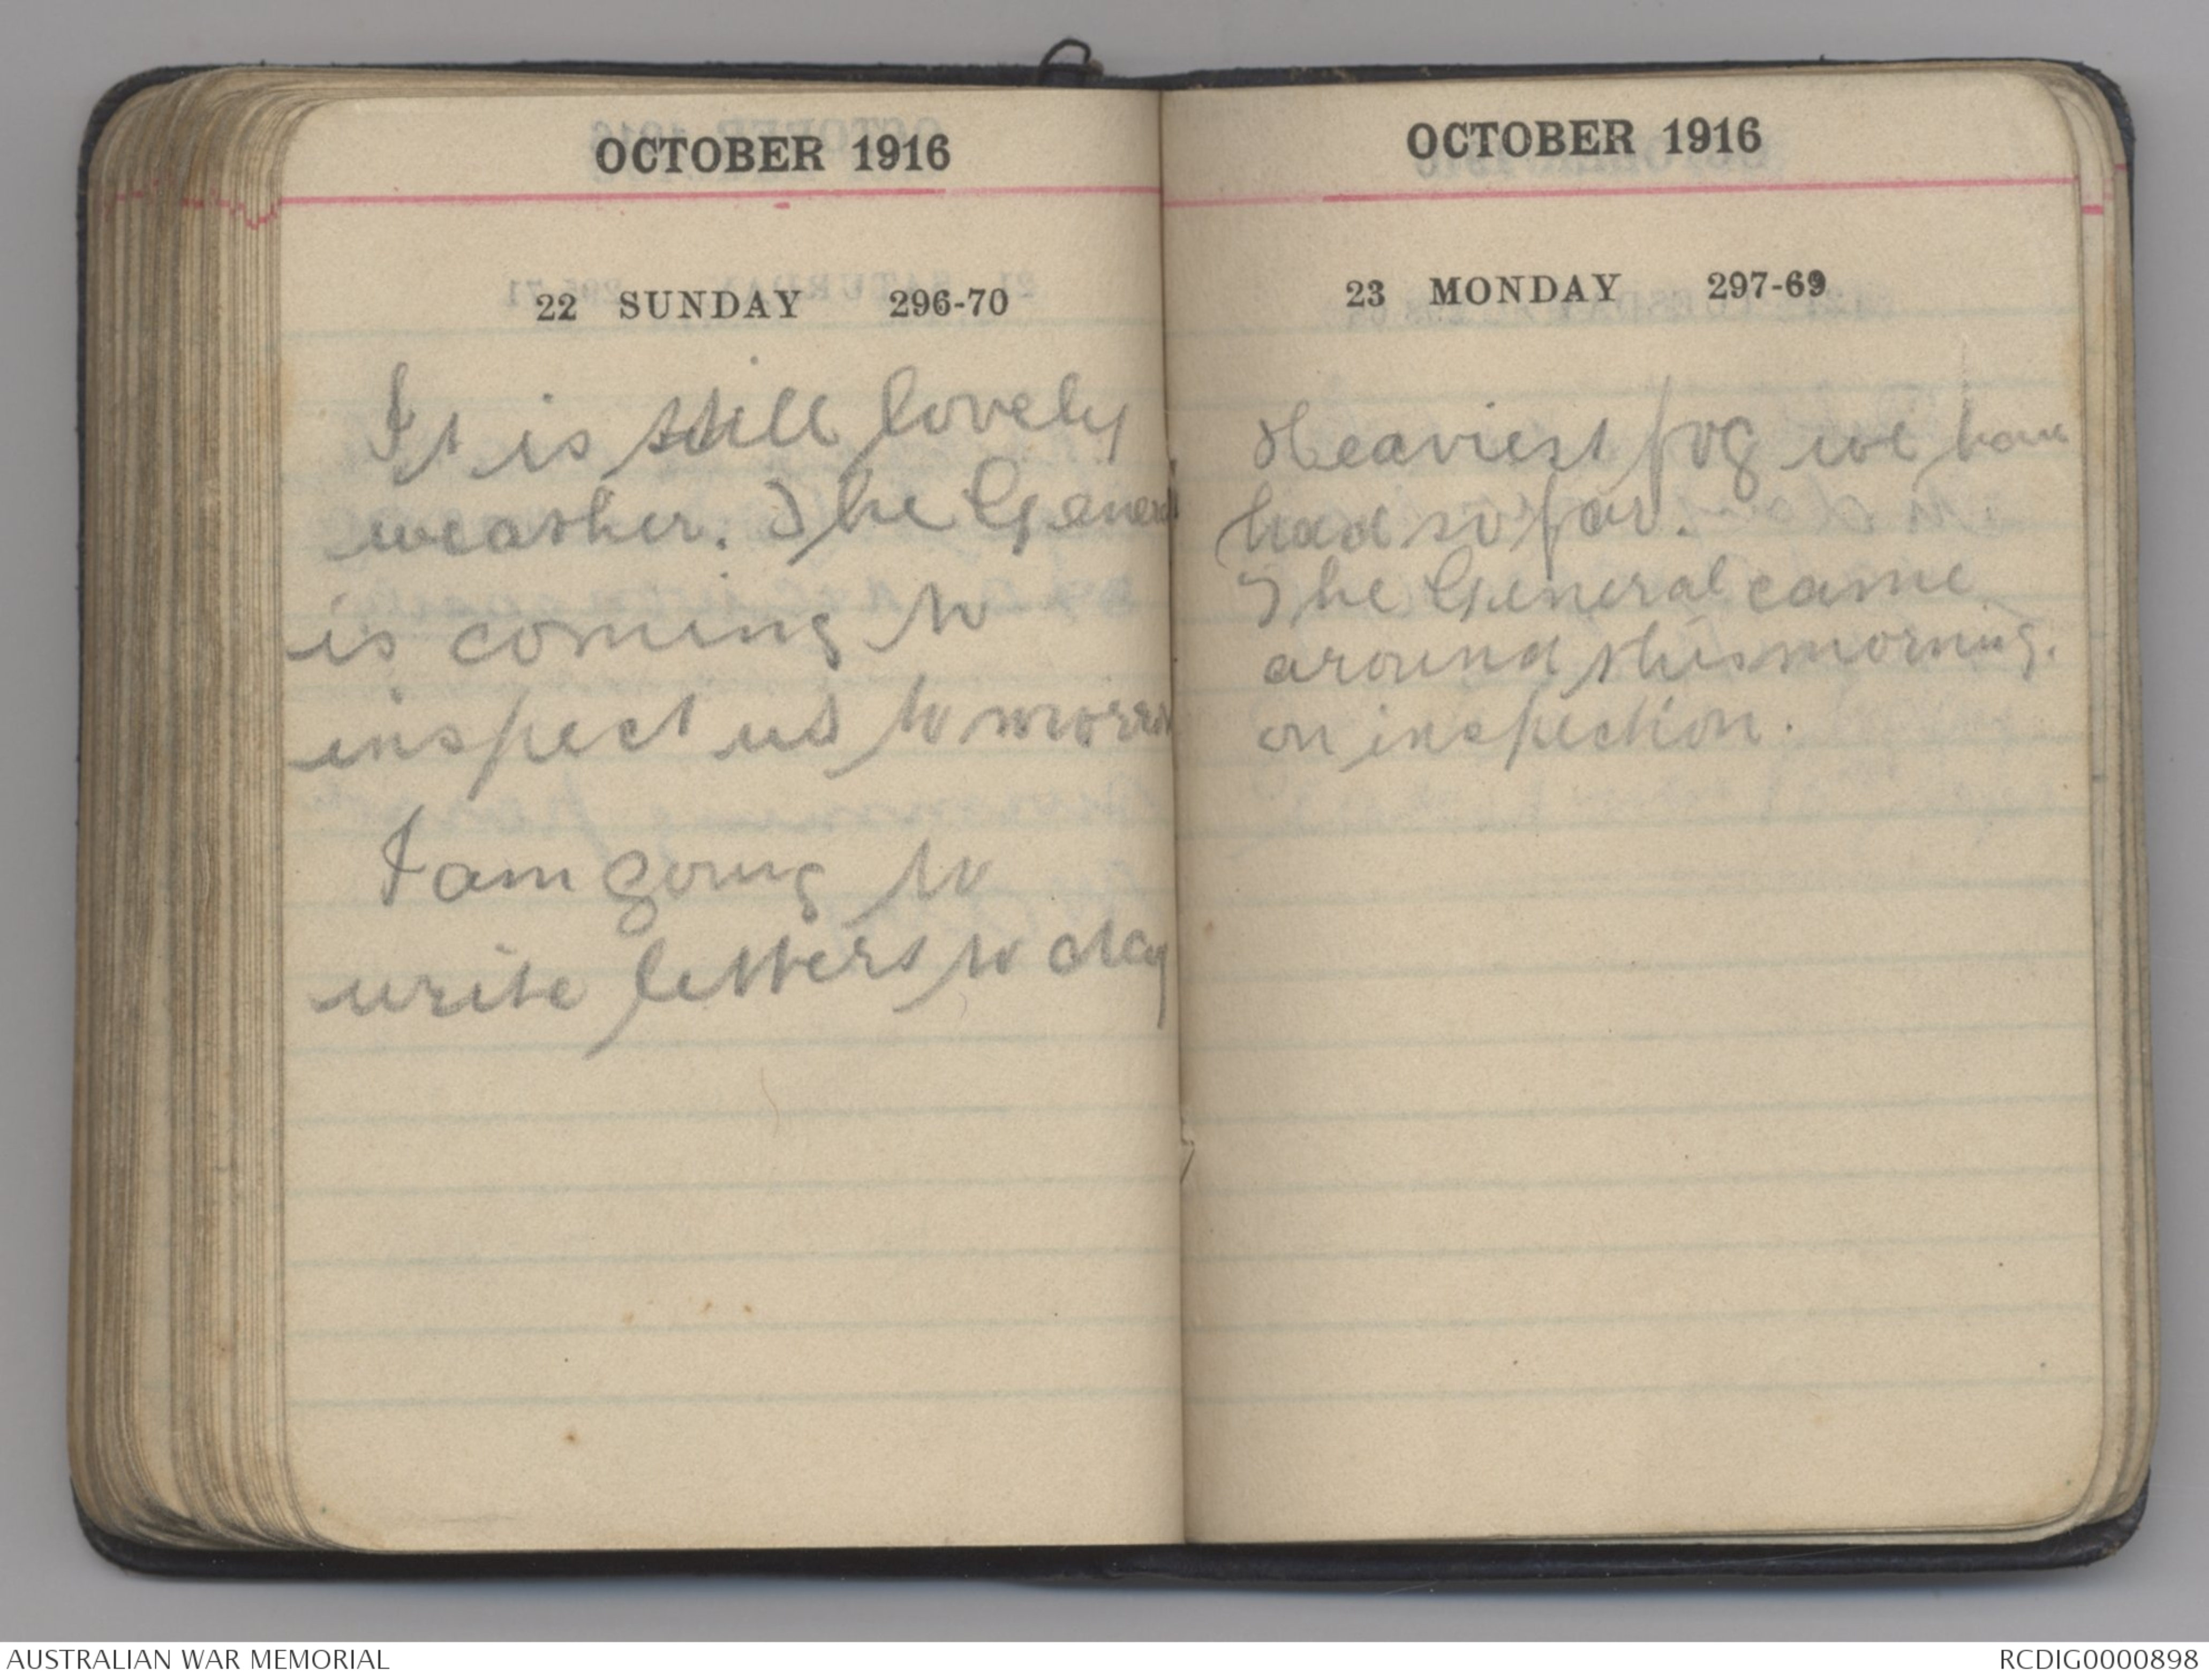 OCTOBER 1916
22 SUNDAY 296-70
It is still lovely
weather. The General
is coming to
inspect us to morrow
I am going to
write letters to day
OCTOBER 1916
23 MONDAY 297-69
Heaviest fog we have
had so far.
The General came
around this morning.
on inspection.
AUSTRALIAN WAR MEMORIAL
RCDIG0000898